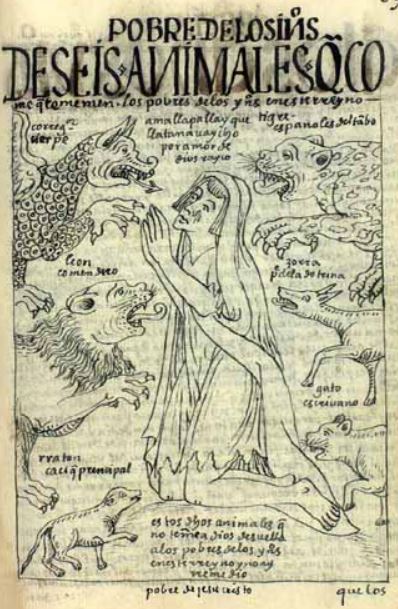 POBRE DE LOS IN̄S
DE SEIS ANIMALES Q̄ CO
me q̄ temen los pobres de los yn̄s en este rreyno
corregr
cierpe
ama llapallayque
llatanauaycho
por amor de
dios rayco
tigre
españoles del tanbo
leon
comendero
zorra
pe de la dotrina
gato
escrivano
rraton
cacique prencipal
estos dhos animales q̄
no temen a dios desuella
a los pobres de los yn̄s
en este rreyno y no ay
rremedio
pobre de jesucristo
que los